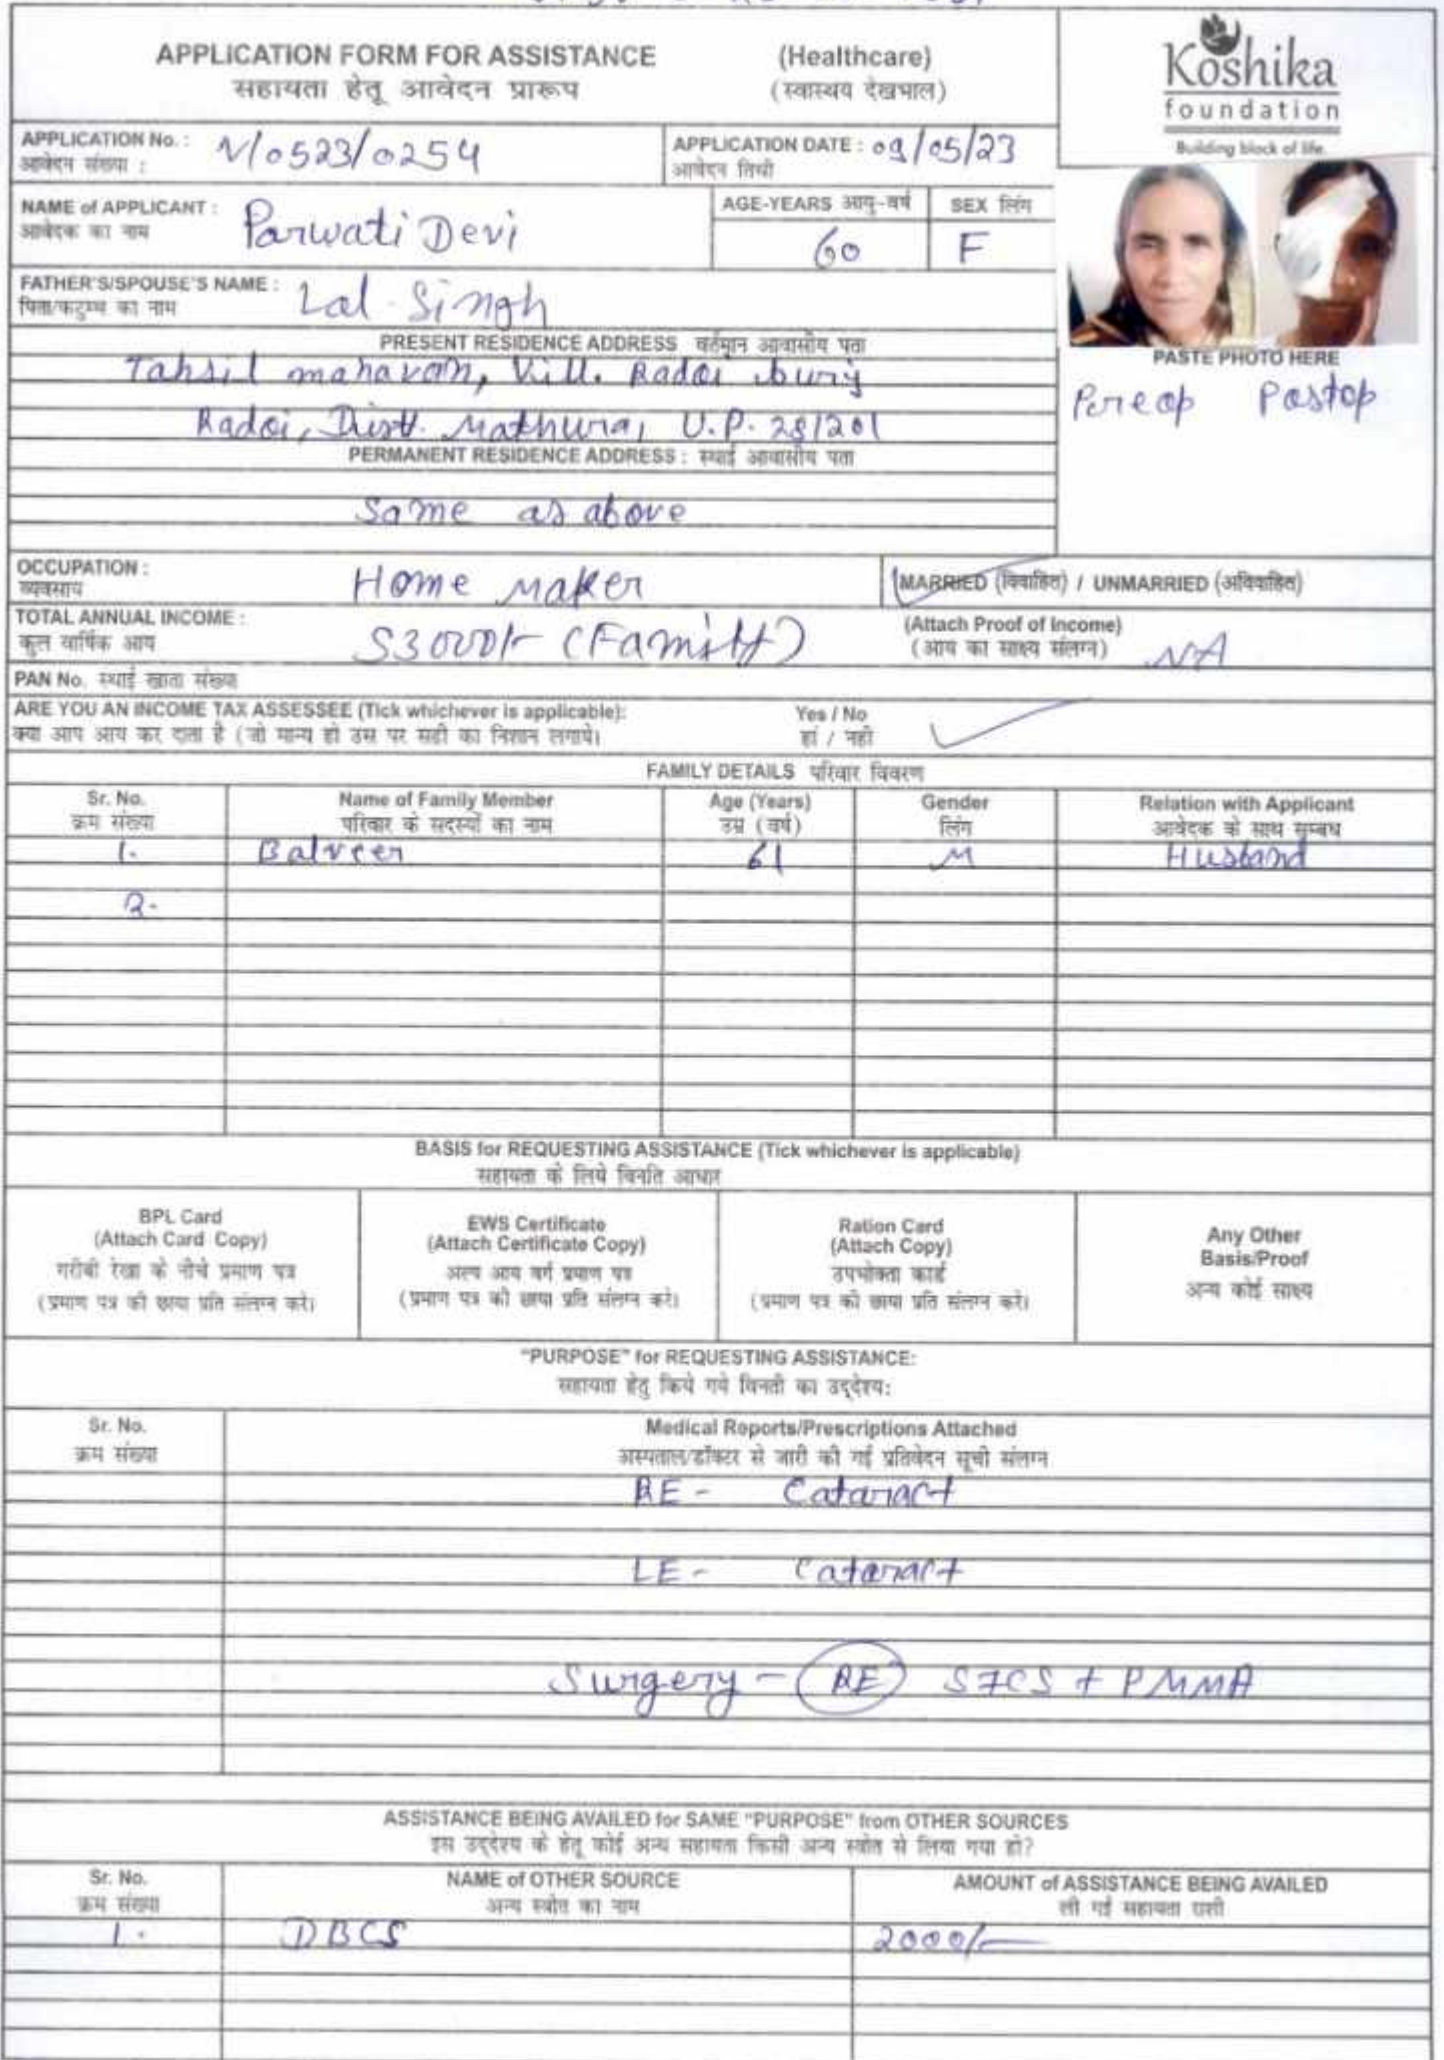 APPLICATION FORM FOR ASSISTANCE (Healthcare)
सहायता हेतू आवेदन प्रारूप (स्वास्थय देखभाल)
Koshika
foundation
Building block of life.
APPLICATION No. : N/0523/0254 APPLICATION DATE : 09/05/23
आवेदन संख्या : आवेदन तिथी
NAME of APPLICANT : Parwati Devi AGE-YEARS आयु-वर्ष SEX लिंग
आवेदक का नाम 60 F
FATHER'S/SPOUSE'S NAME : Lal Singh
पिता/कटुम्ब का नाम
PRESENT RESIDENCE ADDRESS वर्तमान आवासीय पता
PASTE PHOTO HERE
Preop Postop
Tahsil mahavan, Vill. Radoi burj
Radoi, Distt. Mathura, U.P. 281201
PERMANENT RESIDENCE ADDRESS : स्थाई आवासीय पता
Same as above
OCCUPATION : Home Maker MARRIED (विवाहित) / UNMARRIED (अविवाहित)
व्यवसाय
TOTAL ANNUAL INCOME : 53000/- (Family) (Attach Proof of Income)
कुल वार्षिक आय (आय का साक्ष्य संलग्न) NA
PAN No. स्थाई खाता संख्या
ARE YOU AN INCOME TAX ASSESSEE (Tick whichever is applicable): Yes / No
क्या आप आय कर दाता है (जो मान्य हो उस पर सही का निशान लगाये। हां / नही
FAMILY DETAILS परिवार विवरण
Sr. No. Name of Family Member Age (Years) Gender Relation with Applicant
क्रम संख्या परिवार के सदस्यों का नाम उम्र (वर्ष) लिंग आवेदक के साथ सम्बध
1. Balveer 61 M Husband
2.
BASIS for REQUESTING ASSISTANCE (Tick whichever is applicable)
सहायता के लिये विनति आधार
BPL Card
(Attach Card Copy)
गरीबी रेखा के नीचे प्रमाण पत्र
(प्रमाण पत्र की छाया प्रति संलग्न करे)
EWS Certificate
(Attach Certificate Copy)
अल्प आय वर्ग प्रमाण पत्र
(प्रमाण पत्र की छाया प्रति संलग्न करे)
Ration Card
(Attach Copy)
उपभोक्ता कार्ड
(प्रमाण पत्र की छाया प्रति संलग्न करे)
Any Other
Basis/Proof
अन्य कोई साक्ष्य
"PURPOSE" for REQUESTING ASSISTANCE:
सहायता हेतु किये गये विनती का उद्देश्य:
Sr. No. Medical Reports/Prescriptions Attached
क्रम संख्या अस्पताल/डॉक्टर से जारी की गई प्रतिवेदन सूची संलग्न
RE - Cataract
LE - Cataract
Surgery - RE SICS + PMMA
ASSISTANCE BEING AVAILED for SAME "PURPOSE" from OTHER SOURCES
इस उद्देश्य के हेतू कोई अन्य सहायता किसी अन्य स्त्रोत से लिया गया हो?
Sr. No. NAME of OTHER SOURCE AMOUNT of ASSISTANCE BEING AVAILED
क्रम संख्या अन्य स्त्रोत का नाम ली गई सहायता राशी
1. DBCS 2000/-